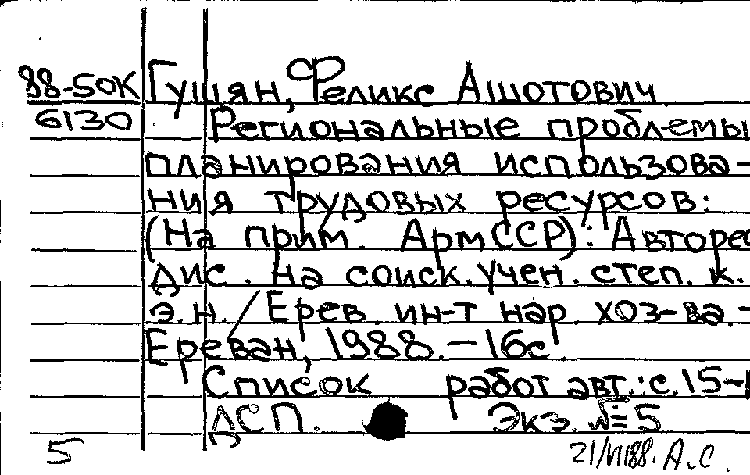 88-50К Гушян, Феликс Ашотович
6130 Региональные проблемы
планирования использова-
ния трудовых ресурсов:
(На прим. АрмССР): Авторе
дис. на соиск. учен. степ. к.
э.н. / Ерев. ин-т нар. хоз-ва.-
Ереван, 1988.-16с.
Список работ авт.: с. 15-1
ДСП. Экз. №5
5 А.С.